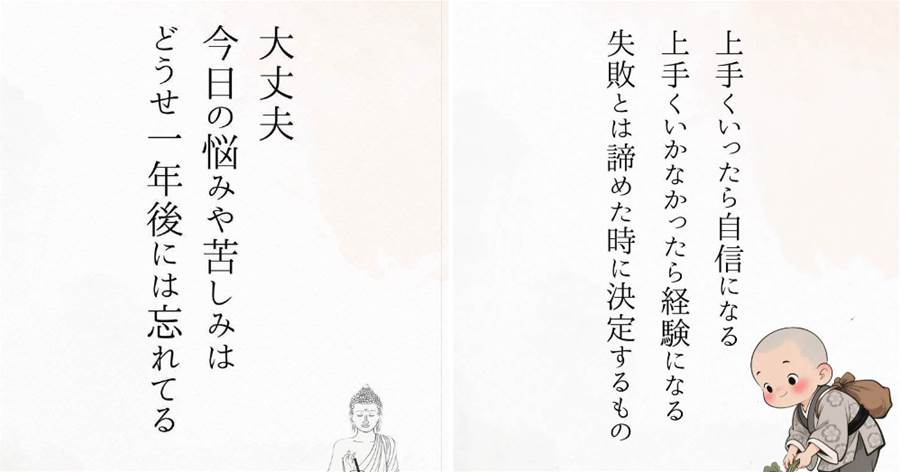 大丈夫
今日の悩みや苦しみは
どうせ一年後には忘れてる
上手くいったら自信になる
上手くいかなかったら経験になる
失敗とは諦めた時に決定するもの